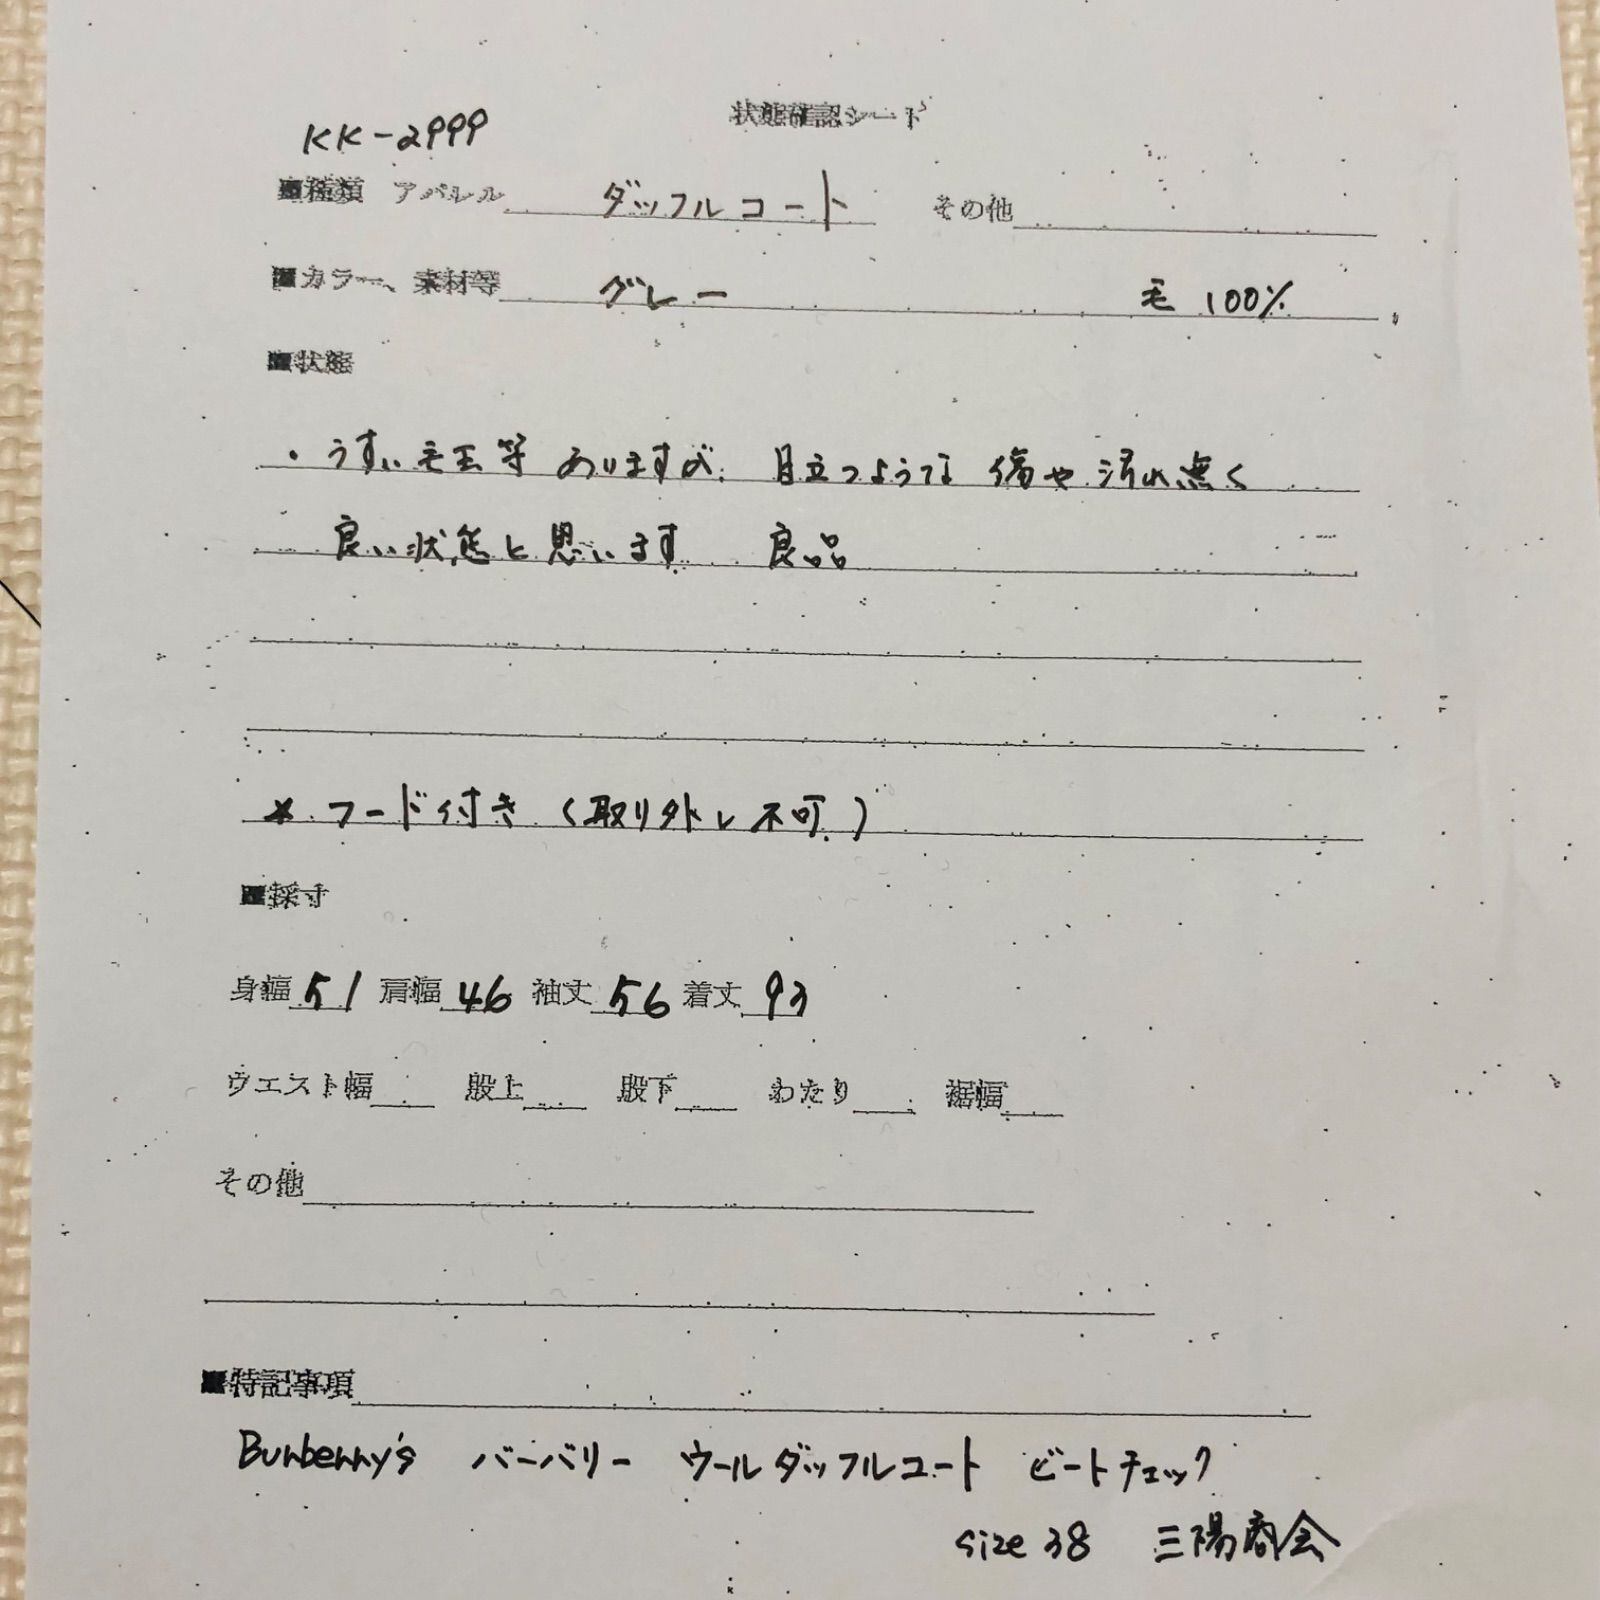 状態確認シート
KK-2999
■種類 アパレル ダッフルコート その他
■カラー、素材等 グレー 毛 100%
■状態
・うすい毛玉等 ありますが、目立つような 傷や 汚れ無く
良い状態と思います 良品
* フード付き (取り外し不可)
■採寸
身幅 51 肩幅 46 袖丈 56 着丈 93
ウエスト幅 股上 股下 わたり 裾幅
その他
■特記事項
Burberry's バーバリー ウールダッフルコート ビートチェック
size 38 三陽商会